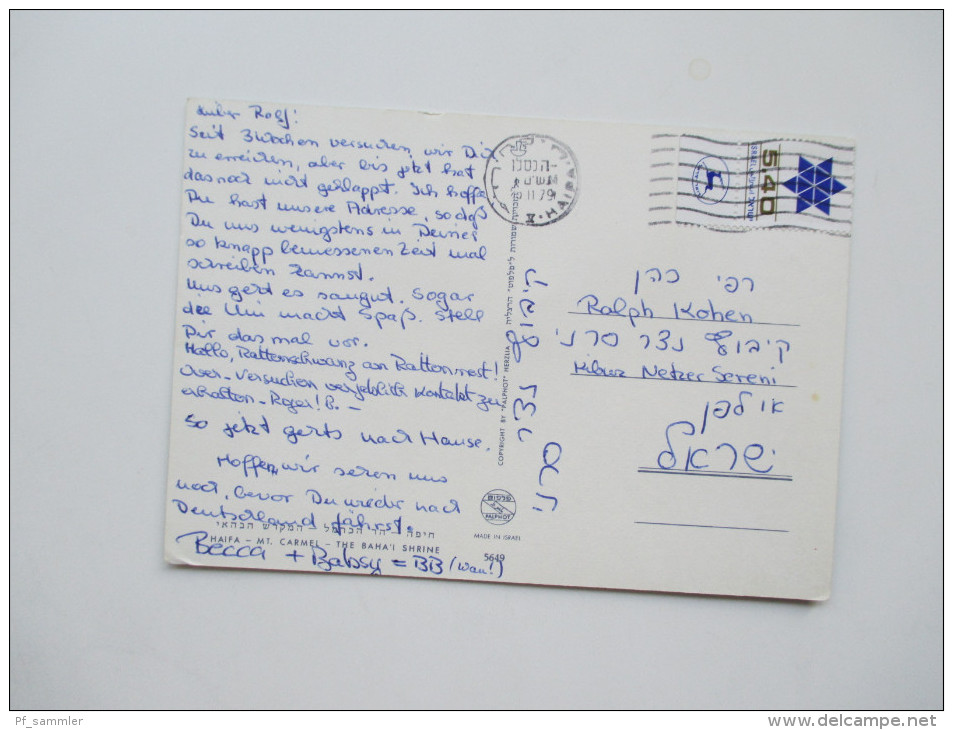 Lieber Rolf!
Seit 3 Wochen versuchen wir Dich
zu erreichen, aber bis jetzt hat
das noch nicht geklappt. Ich hoffe
Du hast unsere Adresse, sodaß
Du uns wenigstens in Deiner
so knapp bemessenen Zeit mal
schreiben kannst.
Uns geht es saugut. Sogar
die Uni macht Spaß. Stell
Dir das mal vor.
Hallo, Rattenschwanz an Rattennest!
Over - Versuchen vergeblich Kontakt zu
erhalten - Roger! B. -
So jetzt gehts nach Hause.
Hoffen, wir sehen uns
noch, bevor Du wieder nach
Deutschland fährst.
Becca + Babsy = BB (wau!)
חיפה - הר הכרמל - המקדש הבהאי
HAIFA - MT. CARMEL - THE BAHA'I SHRINE
5649
MADE IN ISRAEL
PALPHOT
COPYRIGHT BY "PALPHOT" HERZLIA
קיבוץ נצר סרני
HAIFA
5.40
ISRAEL
רפי כהן
Ralph Kohen
קיבוץ נצר סרני
Kibuz Netzer Sereni
אולפן
ישראל
Pf_sammler
www.delcampe.net